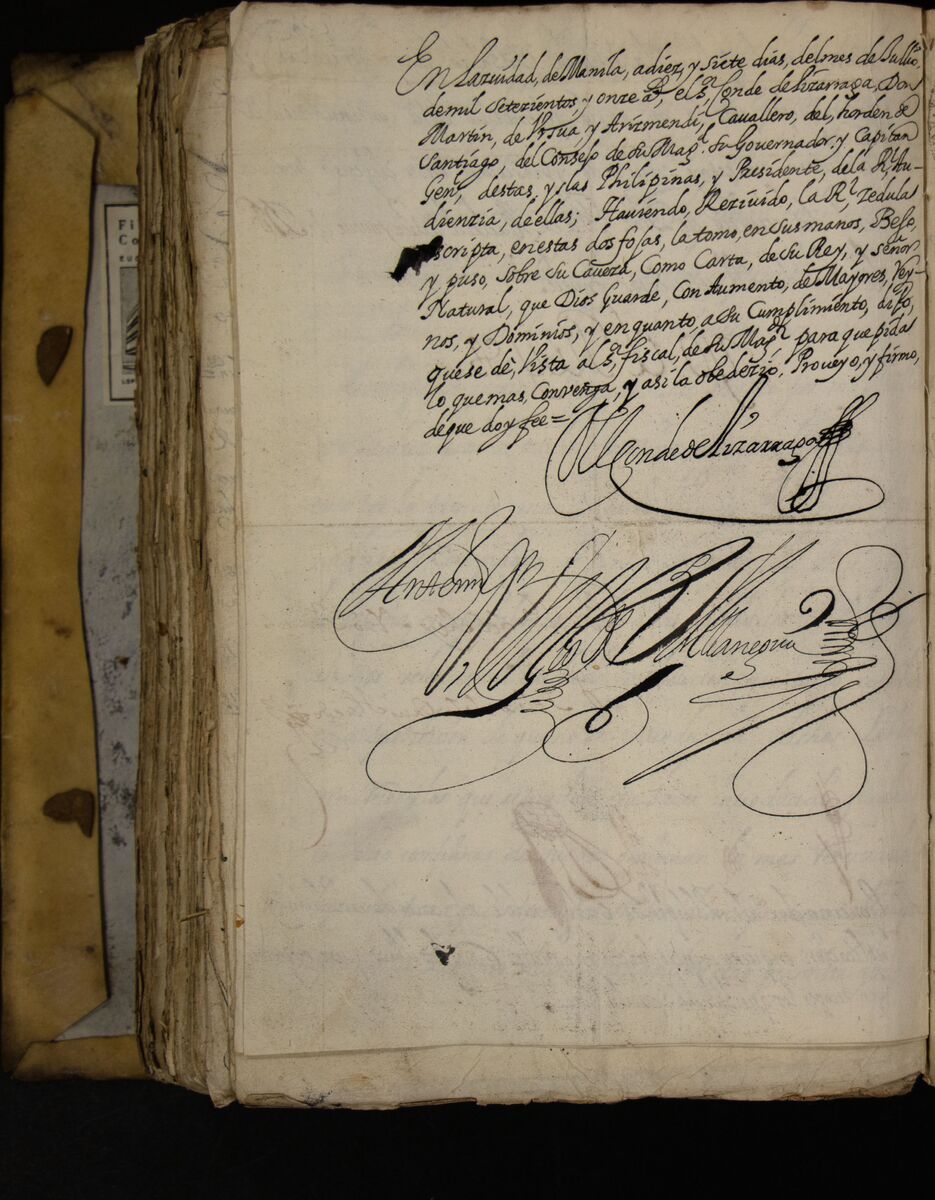 En la ziudad, de Manila, a diez, y siete dias, del mes de Jullio,
de mil setezientos, y onze aˢ, el sʳ Conde de Lizarraga, Don
Martin, de Vrsua, y Arizmendi, Cavallero, del horden de
Santiago, del Consejo de su Magᵈ. su Governador, y Capitan
Genˡ, destas, yslas Philipinas, y Presidente, de la Rˡ Au-
dienzia, de ellas; Haviendo, Rezivido, la Rˡ zedula
scripta, en estas dos fojas, la tomo, en sus manos, Beso,
y puso, sobre su Caveza, Como Carta, de su Rey, y señor
Natural, que Dios Guarde, Con Aumento, de Mayores, Rey-
nos, y Dominios, y en quanto, a su Cumplimiento, dijo,
que se dè, Vista al sʳ fiscal, de su Magᵈ para que pida
lo que mas, Convenga, y asi la obedezió, Proveyo, y firmo,
de que doy fee=
El Conde de Lizarraga
Antonio
Fi
Co